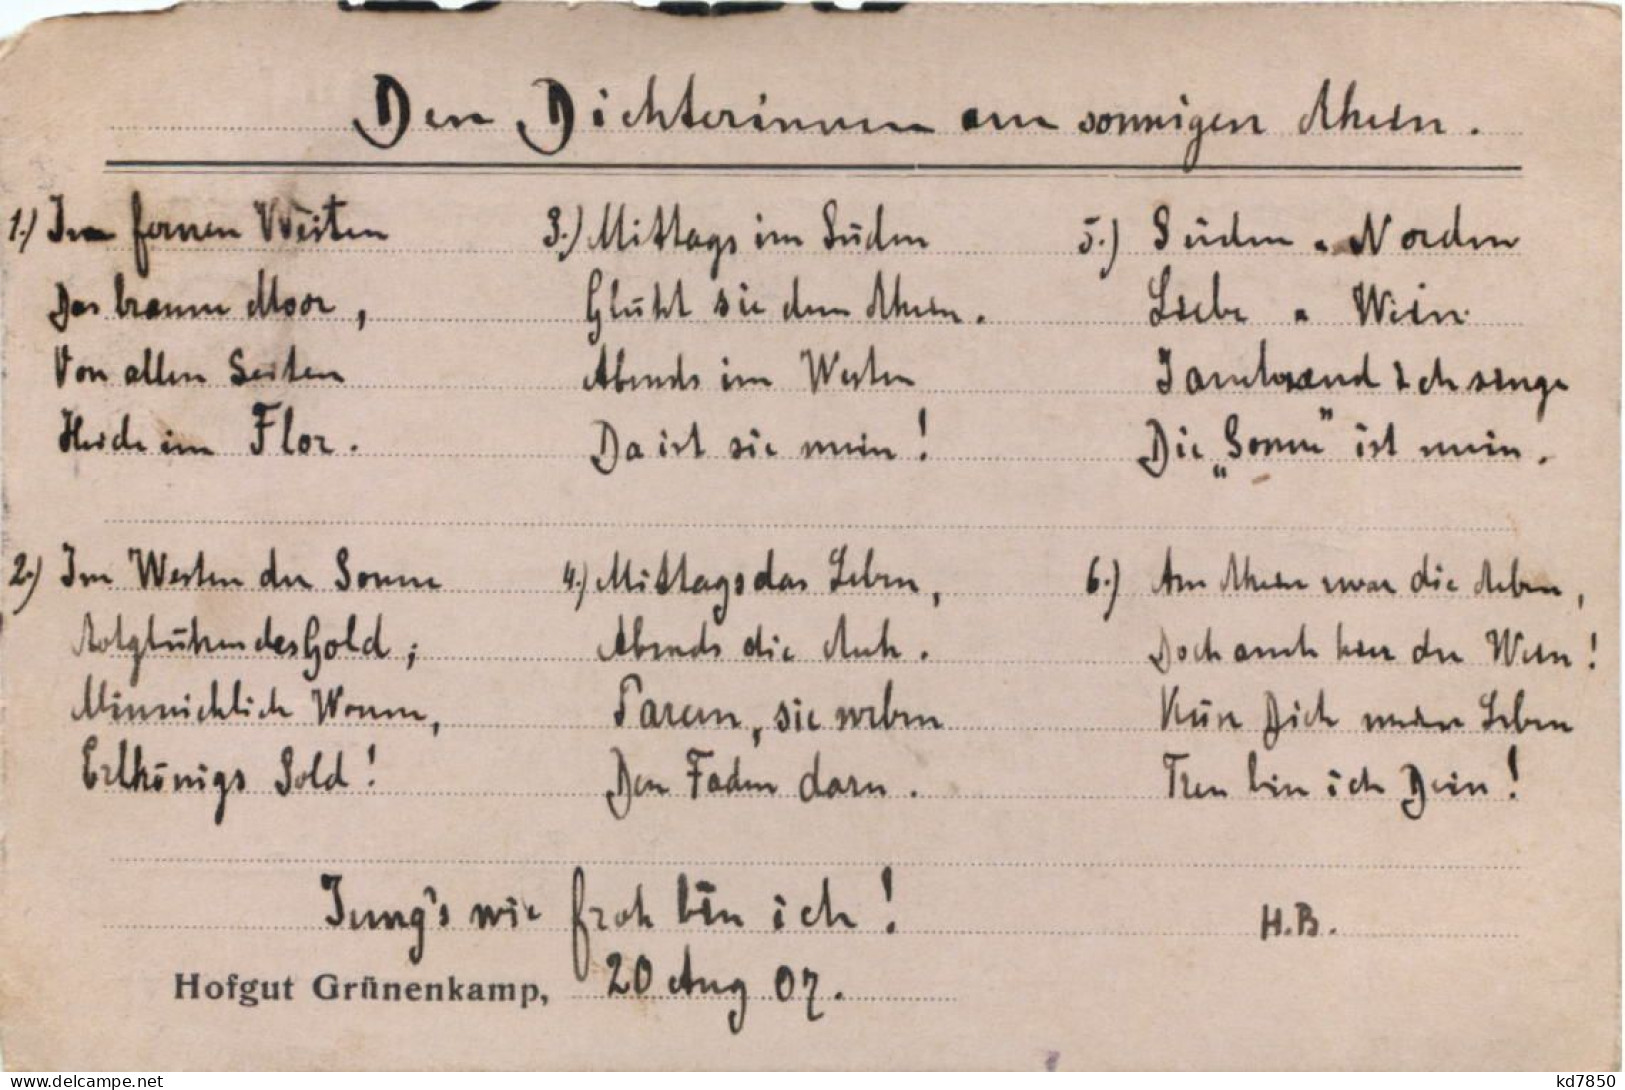 Den Dichterinnen am sonnigen Rhein.
1.) Im fernen Weiten
Das braune Moor,
Von allen Seiten
Heide im Flor.
2.) Im Westen der Sonne
Rotglühendes Gold;
Minniechlich Wonne,
Erlkönigs Sold!
3.) Mittags im Süden
Glüht sie dem Rhein.
Abends im Westen
Da ist sie mein!
4.) Mittags das Leben,
Abends die Ruh.
Parzen, sie weben
Den Faden dazu.
5.) Süden u. Norden
Liebe u. Wein
ich singe
Die „Sonne" ist mein.
6.) Am Rhein zwar die Reben,
Doch auch hier der Wein!
Dich mein Leben
Treu bin ich Dein!
Jung's wie froh bin ich!
H.B.
Hofgut Grünenkamp, 20 Aug 07.
delcampe.net
kd7850